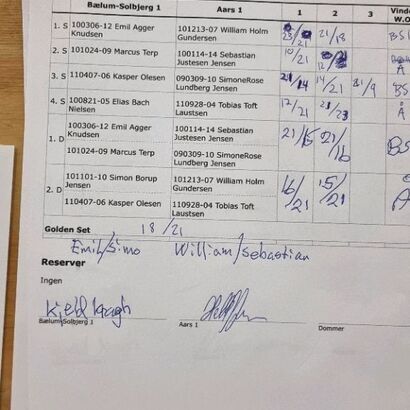 Bælum-Solbjerg 1 Aars 1 1 2 3 Vinde W.O
1. S 100306-12 Emil Agger Knudsen 101213-07 William Holm Gundersen 23/21 21/18 BS
2. S 101024-09 Marcus Terp 100114-14 Sebastian Justesen Jensen 10/21 A
3. S 110407-06 Kasper Olesen 090309-10 SimoneRose Lundberg Jensen 21/14 14/21 21/9 BS
4. S 100821-05 Elias Bach Nielsen 110928-04 Tobias Toft Laustsen 17/21 21/23 A
1. D 100306-12 Emil Agger Knudsen 100114-14 Sebastian Justesen Jensen 21/15 21/16 BS
101024-09 Marcus Terp 090309-10 SimoneRose Lundberg Jensen
2. D 101101-10 Simon Borup Jensen 101213-07 William Holm Gundersen 16/21 15/21 A
110407-06 Kasper Olesen 110928-04 Tobias Toft Laustsen
Golden Set 18/21
Emil/Simo William/Sebastian
Reserver
Ingen
Kjeld Kragh
Bælum-Solbjerg 1 Aars 1 Dommer